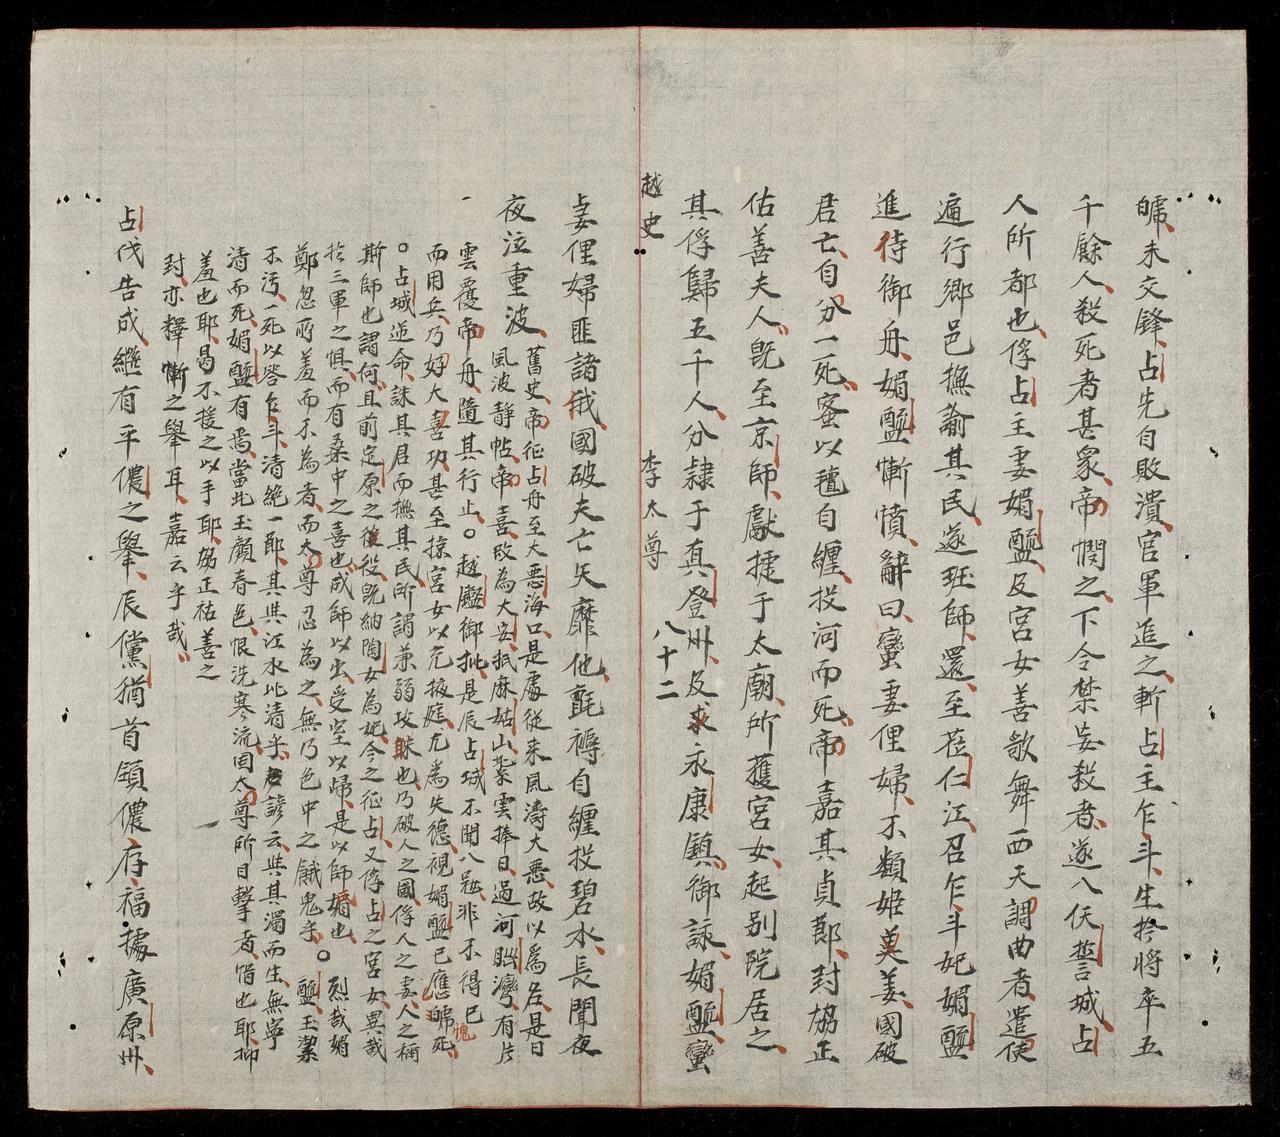 皞未交鋒占先自敗潰官軍追之斬占主乍斗生擒將卒五
千餘人殺死者甚衆帝憫之下令禁妄殺者遂入佛誓城占
人所都也俘占主妻媚醯及宮女善歌舞西天調曲者遣使
遍行鄉邑撫諭其民遂班師還至莅仁江召乍斗妃媚醯
進侍御舟媚醯慚憤辭曰蠻妻俚婦不類姬姜國破
君亡自分一死蜜以氊自纏投河而死帝嘉其貞節封協正
佑善夫人既至京師獻捷于太廟所獲宮女起别院居之
其俘歸五千人分隷于真登州及求永康鎮御詠媚醯蠻
越史 李太尊 八十二
妻俚婦匪諸俄國破夫亡矢靡他氈褥自纏投碧水長聞夜
夜泣重波舊史帝征占舟至大惡海口是處從來風濤大悪故以爲名是日
風波静帖帝喜改為大安扺麻姑山紫雲捧日過河㟂灣有片
雲覆帝舟隨其行止○越鑑御批是辰占城不聞入寇非不得已
而用兵乃好大喜功甚至掠宮女以充掖庭尤為失德視媚醯已應愧死
○占城逆命誅其君而撫其民所謂兼弱攻昧也乃破人之國俘人之妻人之稱
斯師也謂何且前定原之後役既納陶女為妃今之征占又俘占之宮女異哉
於三軍之惧而有桑中之喜也成師以出受室以歸是以師媚也
鄭忽所羞而不為者而太尊忍為之無乃色中之餓鬼乎○烈哉媚醯玉潔
不汚一死以答乍斗清絶一耶其與江水比清乎諺云與其濁而生無寧
清而死媚醯有焉當此玉顔春色恨洗寒流固太尊所目擊者惜也耶抑
羞也耶曷不援之以手耶協正祐善之
封亦釋慚之舉耳嘉云乎哉
占伐告成繼有平儂之舉辰儻猶首領儂存福據廣原州